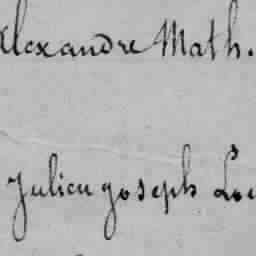 Alexandre Math.
Julien Joseph